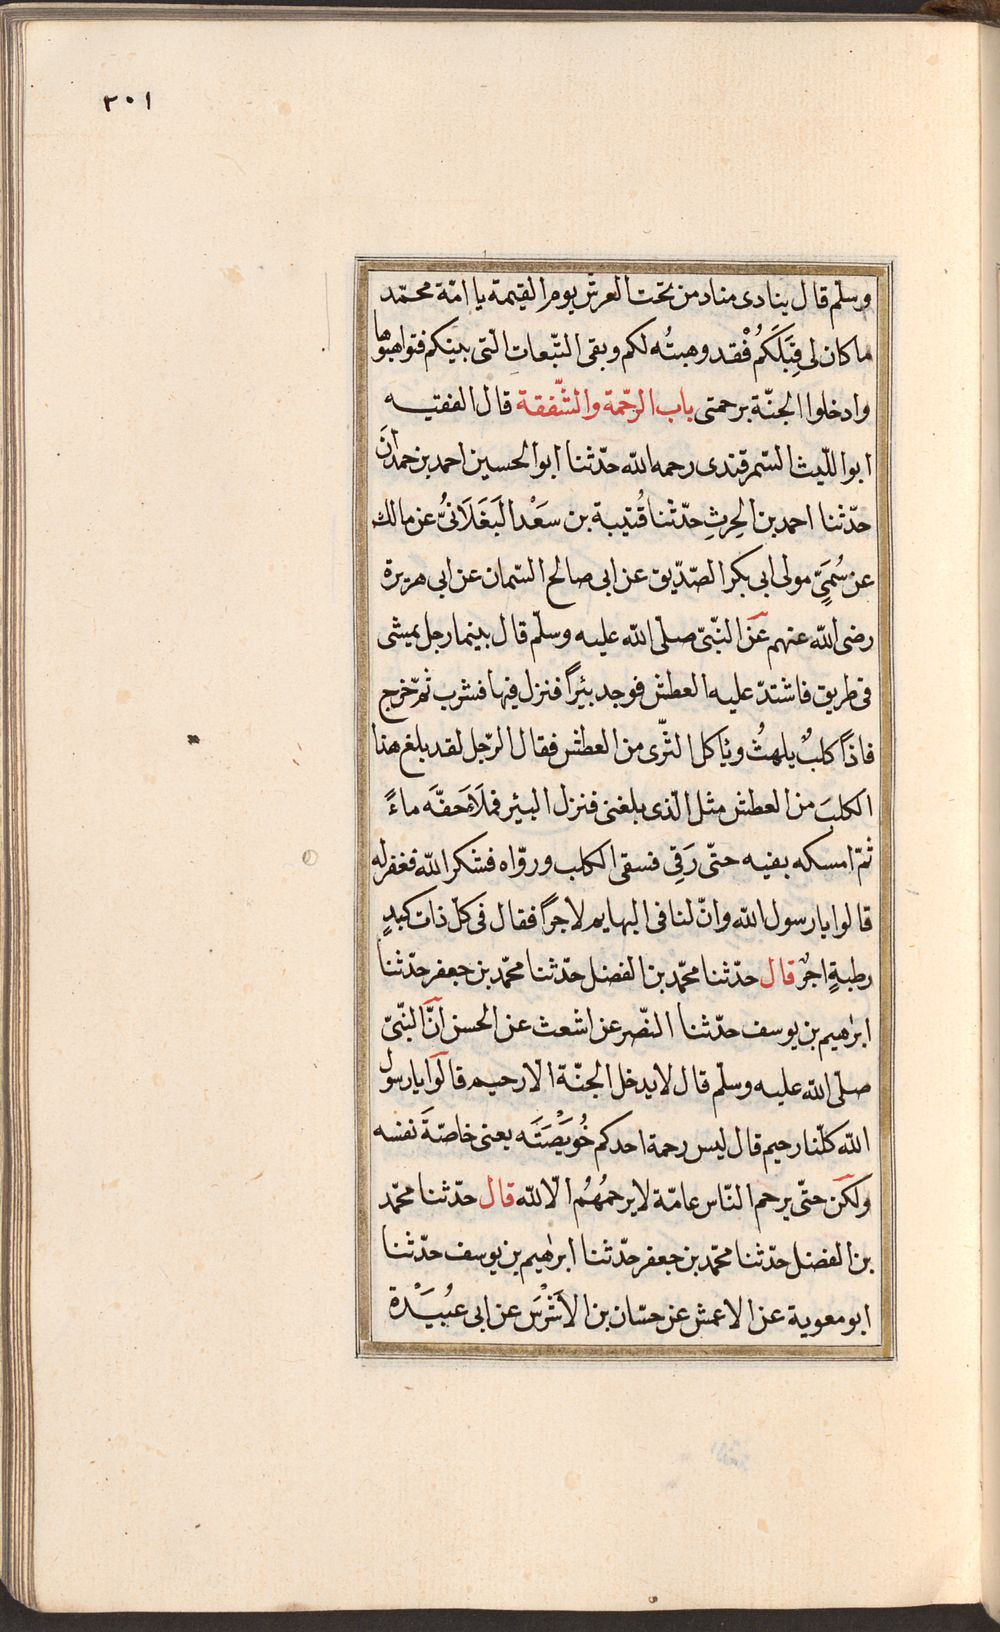 ٣٠١
وسلّم قال ينادى مناد من تحت العرش يوم القيمة يا امّة محمّد
ما كان لى قِبَلَكُمْ فقد وهبتُه لكم وبقى التّبعات الّتى بينكم فتواهبوها
وادخلوا الجنّة برحمتى باب الرّحمة والشّفقة قال الفقيه
ابو اللّيث السّمرقندى رحمه اللّه حدّثنا ابو الحسين احمد بن حمدانَ
حدّثنا احمد بن الحِرثِ حدّثنا قُتيبة بن سَعْد البَغَلَانىُّ عن مالك
عن سُمَىٍّ مولى ابى بكر الصّدّيق عن ابى صالح السّمان عن ابى هريرة
رضى اللّه عنهم عن النّبىّ صلّى اللّه عليه وسلّم قال بينما رجل يمشى
فى طريق فاشتدّ عليه العطش فوجد بئراً فنزل فيها فشرب ثمّ خرج
فاذاً كلبٌ يلهثُ ويأكل الثّرى من العطش فقال الرّجل لقد بلغ هذا
الكلبَ من العطش مثل الّذى بلغنى فنزل البئر فملَأَ خفّه ماءً
ثمّ امسكه بفيه حتّى رَقِى فسقى الكلب وروّاه فشكر اللّه فغفر له
قالوا يا رسول اللّه وانّ لنا فى البهايم لاجراً فقال فى كلّ ذات كبدٍ
رطبةٍ اجرٌ قال حدّثنا محمّد بن الفضل حدّثنا محمّد بن جعفر حدّثنا
ابرٰهيم بن يوسف حدّثنا النّصر عن اشعث عن الحسن انّ النّبىّ
صلّى اللّه عليه وسلّم قال لا يدخل الجنّة الّا رحيم قالوا يا رسول
اللّه كلّنا رحيم قال ليس رحمة احدكم خُوَيْصَتَه يعنى خاصّةَ نفسه
ولكن حتّى يرحم النّاس عامّة لا يرحمُهُم الّا اللّه قال حدّثنا محمّد
بن الفضل حدّثنا محمّد بن جعفر حدّثنا ابرٰهيم بن يوسف حدّثنا
ابو معوية عن الاعمش عن حسّان بن الاَشْرَس عن ابى عُبَيْدة